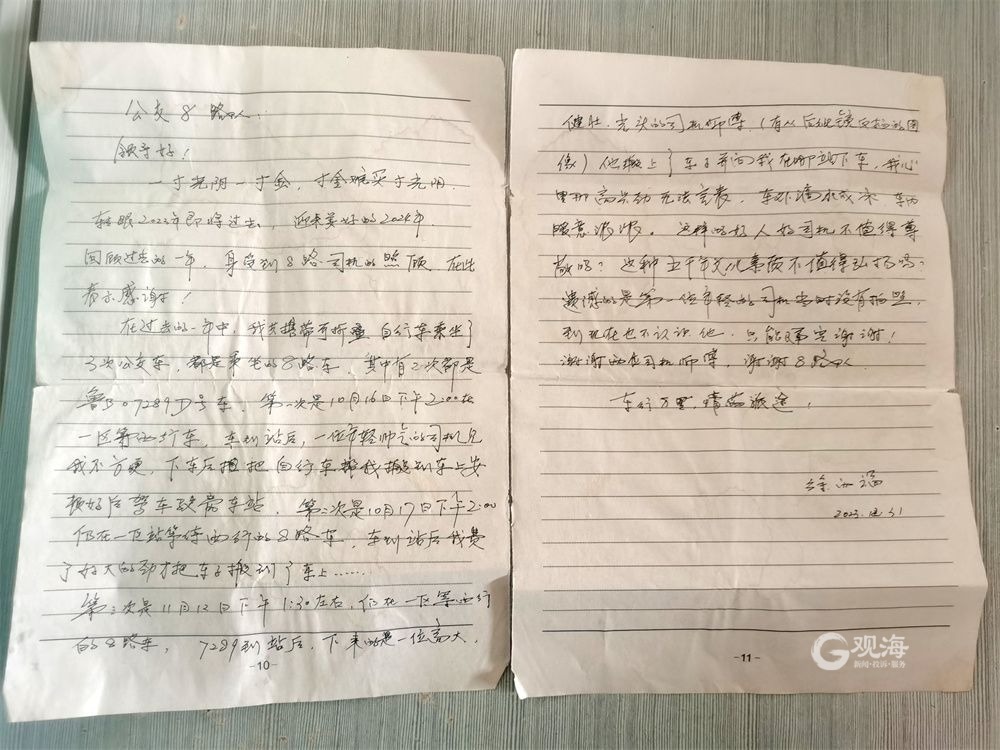 公交8路人：
领导好！
一寸光阴一寸金，寸金难买寸光阴，
转眼2023年即将过去，迎来美好的2024年，
回顾过去的一年，身受到8路司机的照顾，在此
表示感谢！
在过去的一年中，我共携带可折叠自行车乘坐了
3次公交车，都是乘坐的8路车，其中有2次都是
鲁B07289D号车，第一次是10月16日下午2:00在
一区等西行车，车到站后，一位年轻帅气的司机见
我不方便，下车后把自行车帮我搬到车上安
顿好后驾车驶离车站，第二次是10月17日下午2:00
仍在一区站等待西行的8路车，车到站后我费
了好大的劲才把车子搬到了车上……
第三次是11月12日下午1:30左右，仍在一区等西行
的8路车，7289到站后，下来的是一位高大、
-10-
健壮、光头的司机师傅，（有从后视镜内拍的图
像）他搬上了车子并问我在哪站下车，我心
里那高兴劲无法言表，车外滴水成冰，车内
暖意浓浓。这样的好人好司机不值得尊
敬吗？这种五千年文化美德不值得弘扬吗？
遗憾的是第一位年轻的司机当时没有拍照，
到现在也不认识他，只能谢谢！
谢谢两位司机师傅，谢谢8路人
车行万里，情满旅途！
2023.12.31
-11-
观海
新闻·投诉·服务